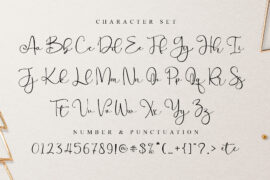 CHARACTER SET
Aa Bb Cc Dd Ee Ff Gg Hh Ii Jj
Kk Ll Mm Nn Oo Pp Qq Rr Ss
Tt Uu Vv Ww Xx Yy Zz
NUMBER & PUNCTUATION
0123456789!@#$%^(_+{}"?>.> etc